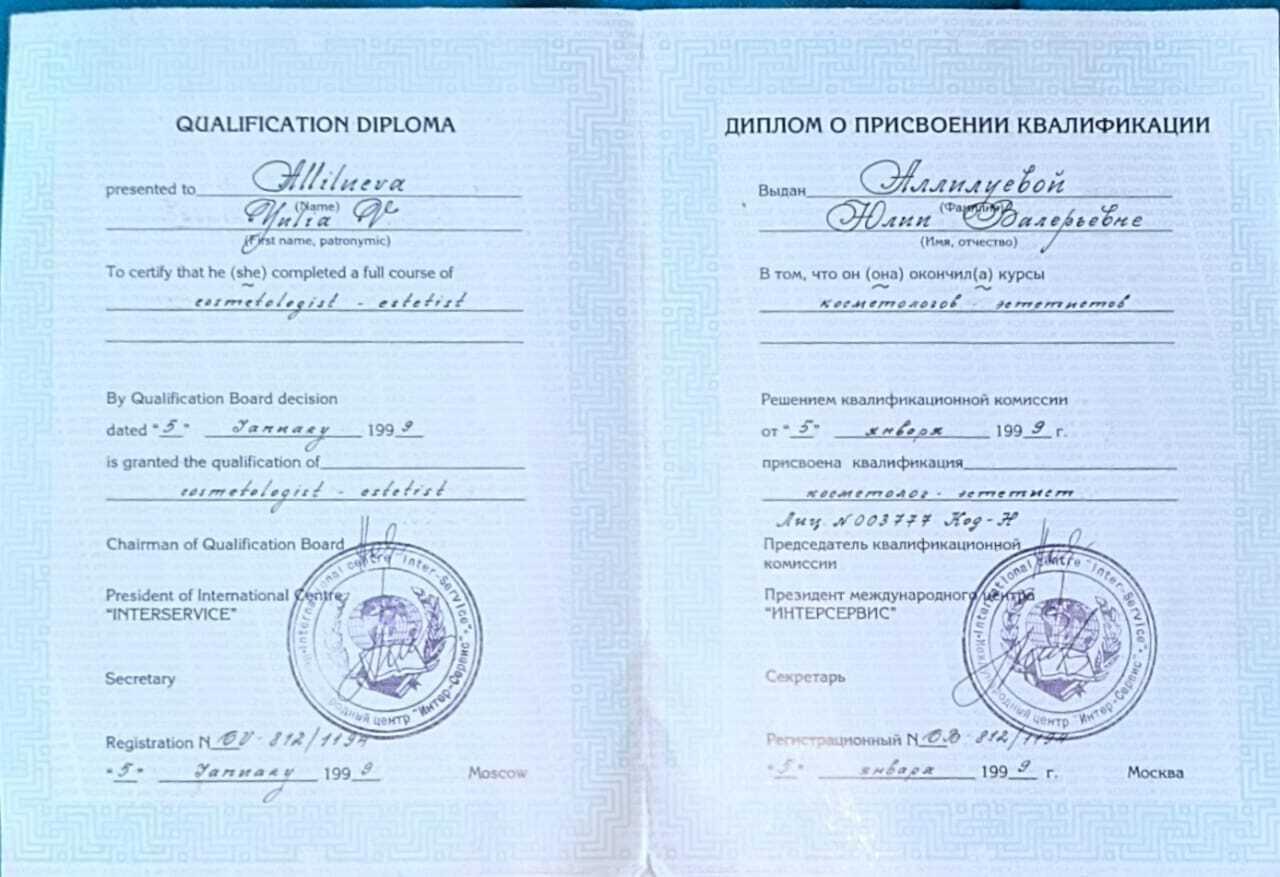 QUALIFICATION DIPLOMA
presented to Allilueva
(Name)
Yulia V
(First name, patronymic)
To certify that he (she) completed a full course of
cosmetologist - estetist
By Qualification Board decision
dated "5" January 1999
is granted the qualification of
cosmetologist - estetist
Chairman of Qualification Board
President of International Centre
"INTERSERVICE"
Secretary
Registration N OV-812/1194
"5" January 1999 Moscow
International centre "Inter-Service"
родный центр "Интер-Сервис"
ДИПЛОМ О ПРИСВОЕНИИ КВАЛИФИКАЦИИ
Выдан Аллилуевой
(Фамилия)
Юлии Валерьевне
(Имя, отчество)
В том, что он (она) окончил(а) курсы
косметологов - эстетистов
Решением квалификационной комиссии
от "5" января 1999 г.
присвоена квалификация
косметолог - эстетист
Лиц. N003777 Код-Н
Председатель квалификационной
комиссии
Президент международного центра
"ИНТЕРСЕРВИС"
Секретарь
Регистрационный N ОВ-812/1194
"5" января 1999 г. Москва
International centre "Inter-Service"
родный центр "Интер-Сервис"